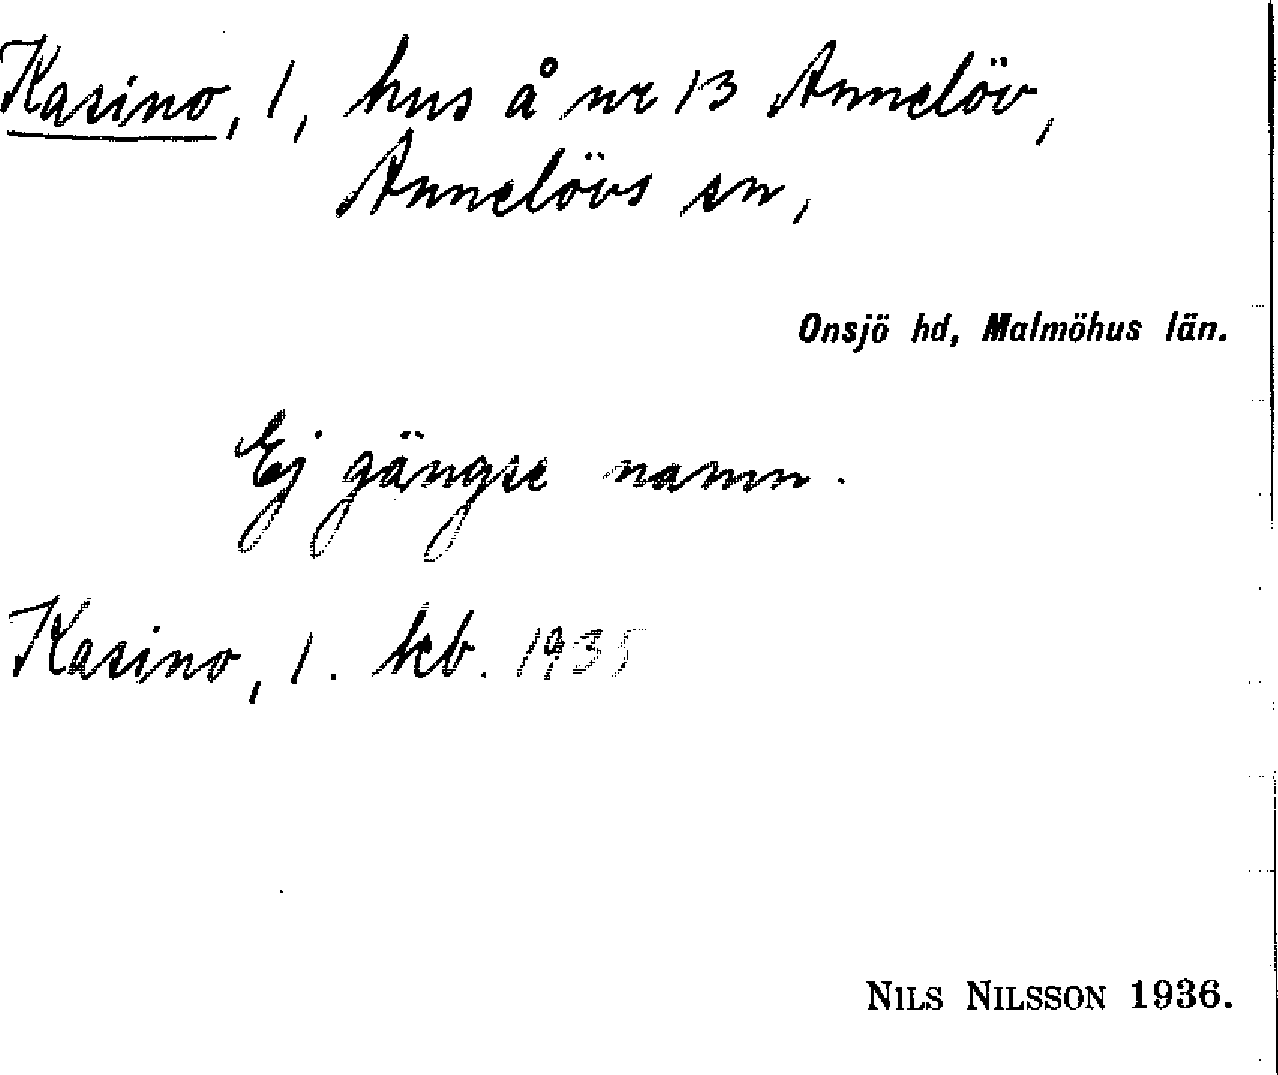 Kasino, 1, hus å nr 13 Annelöv,
Annelövs sn,
Onsjö hd, Malmöhus län.
Ej gängse namn.
Kasino, 1. kb. 1935
NILS NILSSON 1936.